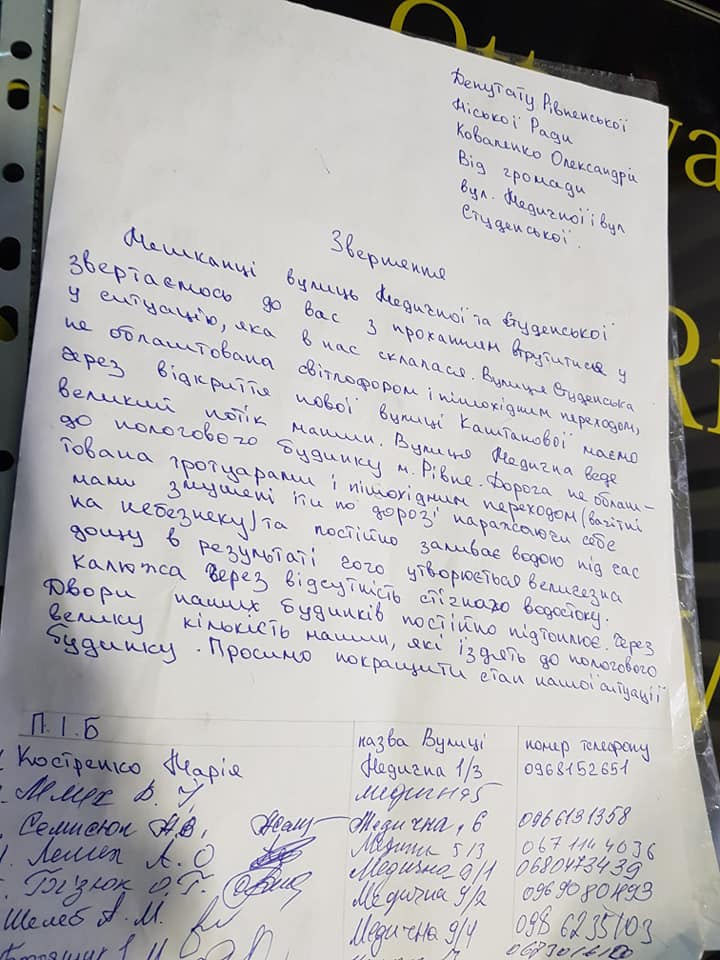 Депутату Рівненської
Міської Ради
Коваленко Олександрі
Від громади
вул. Медичної і вул
Студенської.
Звернення
Мешканці вулиць Медичної та Студенської
звертаємось до вас з проханням втрутитися у
у ситуацію, яка в нас склалася. Вулиця Студенська
не облаштована світлофором і пішохідним переходом,
через відкриття нової вулиці Каштанової маємо
великий потік машин. Вулиця Медична веде
до пологового будинку м. Рівне. Дорога не облаш-
тована тротуарами і пішохідним переходом (вагітні
мами змушені іти по дорозі наражаючи себе
на небезпеку) та постійно заливає водою під час
дощу в результаті чого утворюється величезна
калюжа через відсутність стічного водостоку.
Двори наших будинків постійно підтоплює. Через
велику кількість машин, які їздять до пологового
будинку. Просимо покращити стан нашої ситуації
П.І.Б назва Вулиці номер телефону
Костренко Марія Медична 1/3 0968152651
В. У
Семисюк Медична, 6 0966131358
Лемех А. О 5/3 067114 4036
О.Г. Медична 9/1 0680473439
Шелеб А. М. Медична 9/2
Медична 9/4 098 6235103